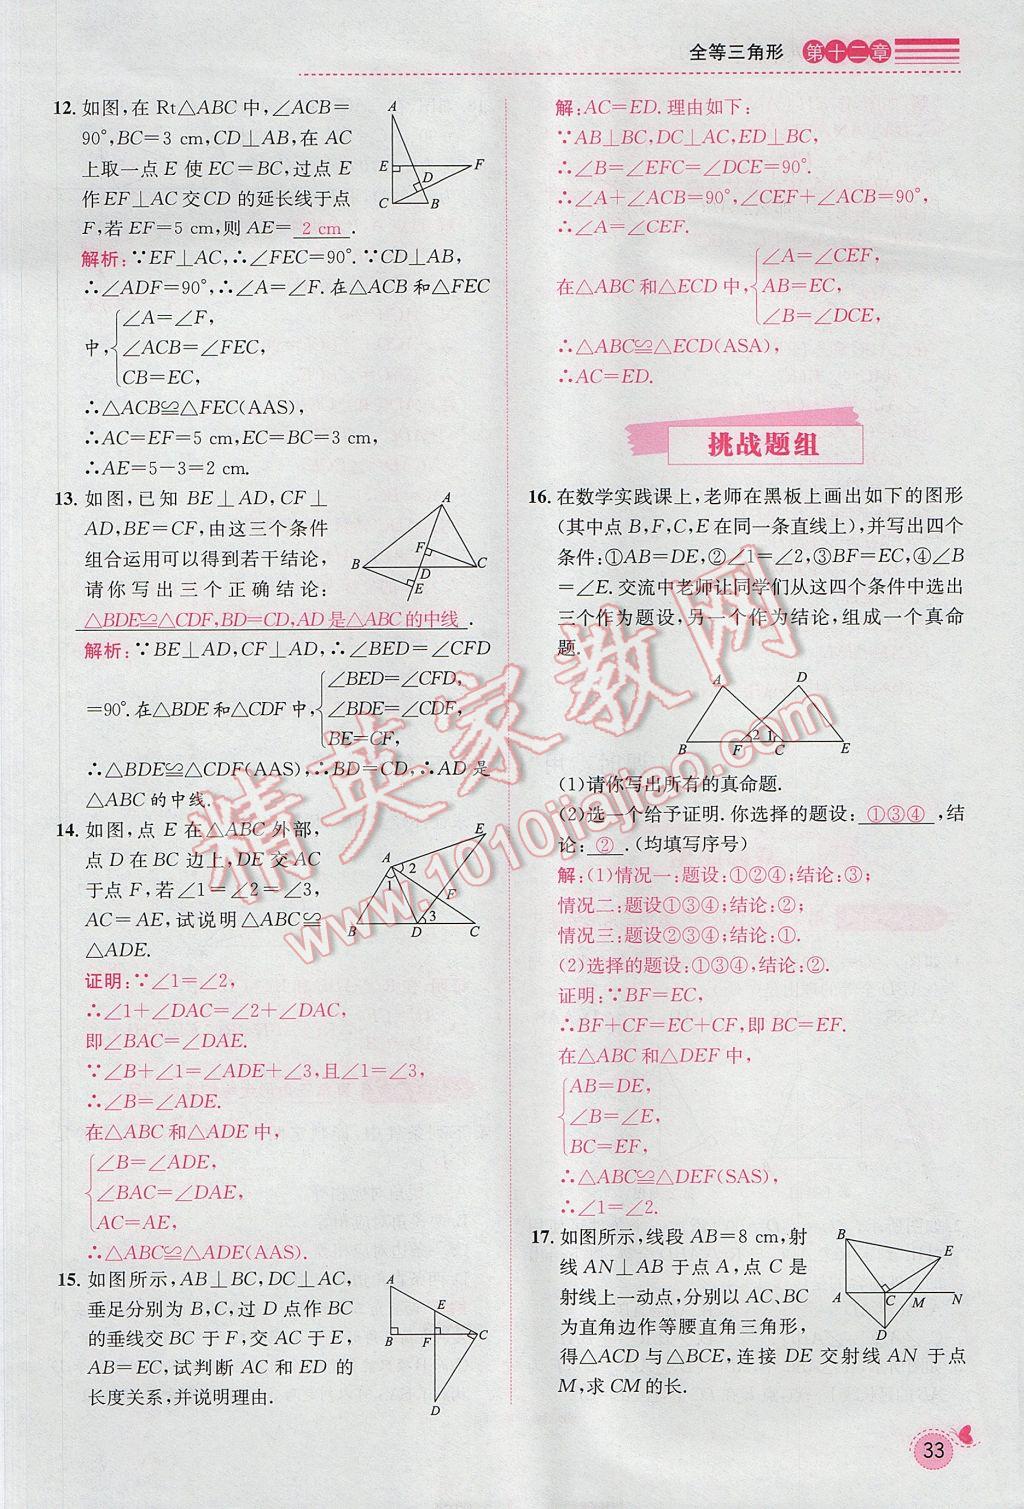 全等三角形 第十二章
12. 如图,在 Rt△ABC 中,∠ACB=
90°,BC=3 cm,CD⊥AB,在 AC
上取一点 E 使 EC=BC,过点 E
作EF⊥AC 交CD 的延长线于点
F,若 EF=5 cm,则 AE= 2 cm .
A
E
F
D
C
B
解析:∵EF⊥AC,∴∠FEC=90°.∵CD⊥AB,
∴∠ADF=90°,∴∠A=∠F.在△ACB和△FEC
∠A=∠F,
中, ∠ACB=∠FEC,
CB=EC,
∴△ACB≌△FEC(AAS),
∴AC=EF=5 cm,EC=BC=3 cm,
∴AE=5-3=2 cm.
13. 如图,已知 BE⊥AD,CF⊥
AD,BE=CF,由这三个条件
组合运用可以得到若干结论,
请你写出三个正确结论:
△BDE≌△CDF,BD=CD,AD是△ABC的中线 .
A
F
B
C
D
E
解析:∵BE⊥AD,CF⊥AD,∴∠BED=∠CFD
∠BED=∠CFD,
=90°.在△BDE和△CDF中, ∠BDE=∠CDF,
BE=CF,
∴△BDE≌△CDF(AAS),∴BD=CD,∴AD是
△ABC的中线.
14. 如图,点 E 在△ABC 外部,
点 D 在 BC 边上,DE 交 AC
于点 F,若∠1=∠2=∠3,
AC=AE,试说明△ABC≌
△ADE.
E
A
2
1
F
3
B
D
C
证明:∵∠1=∠2,
∴∠1+∠DAC=∠2+∠DAC,
即∠BAC=∠DAE.
∵∠B+∠1=∠ADE+∠3,且∠1=∠3,
∴∠B=∠ADE.
在△ABC和△ADE中,
∠B=∠ADE,
∠BAC=∠DAE,
AC=AE,
∴△ABC≌△ADE(AAS).
15. 如图所示,AB⊥BC,DC⊥AC,
垂足分别为 B,C,过 D 点作 BC
的垂线交 BC 于 F,交 AC 于 E,
AB=EC,试判断 AC 和 ED 的
长度关系,并说明理由.
A
E
B
F
C
D
解:AC=ED.理由如下:
∵AB⊥BC,DC⊥AC,ED⊥BC,
∴∠B=∠EFC=∠DCE=90°.
∴∠A+∠ACB=90°,∠CEF+∠ACB=90°,
∴∠A=∠CEF.
∠A=∠CEF,
在△ABC和△ECD中, AB=EC,
∠B=∠DCE,
∴△ABC≌△ECD(ASA),
∴AC=ED.
挑战题组
16. 在数学实践课上,老师在黑板上画出如下的图形
(其中点B,F,C,E在同一条直线上),并写出四个
条件:①AB=DE,②∠1=∠2,③BF=EC,④∠B
=∠E.交流中老师让同学们从这四个条件中选出
三个作为题设,另一个作为结论,组成一个真命
题.
A
D
2
1
B
F
C
E
(1)请你写出所有的真命题.
(2)选一个给予证明.你选择的题设: ①③④ ,结
论: ② .(均填写序号)
解:(1)情况一:题设:①②④;结论:③;
情况二:题设①③④;结论:②;
情况三:题设②③④;结论:①.
(2)选择的题设:①③④,结论:②.
证明:∵BF=EC,
∴BF+CF=EC+CF,即BC=EF.
在△ABC和△DEF中,
AB=DE,
∠B=∠E,
BC=EF,
∴△ABC≌△DEF(SAS),
∴∠1=∠2.
17. 如图所示,线段 AB=8 cm,射
线 AN⊥AB 于点 A,点 C 是
射线上一动点,分别以 AC,BC
为直角边作等腰直角三角形,
得△ACD与△BCE,连接 DE交射线 AN 于点
M,求 CM 的长.
B
E
A
C
M
N
D
33
精英家教网
www.1010jiajiao.com